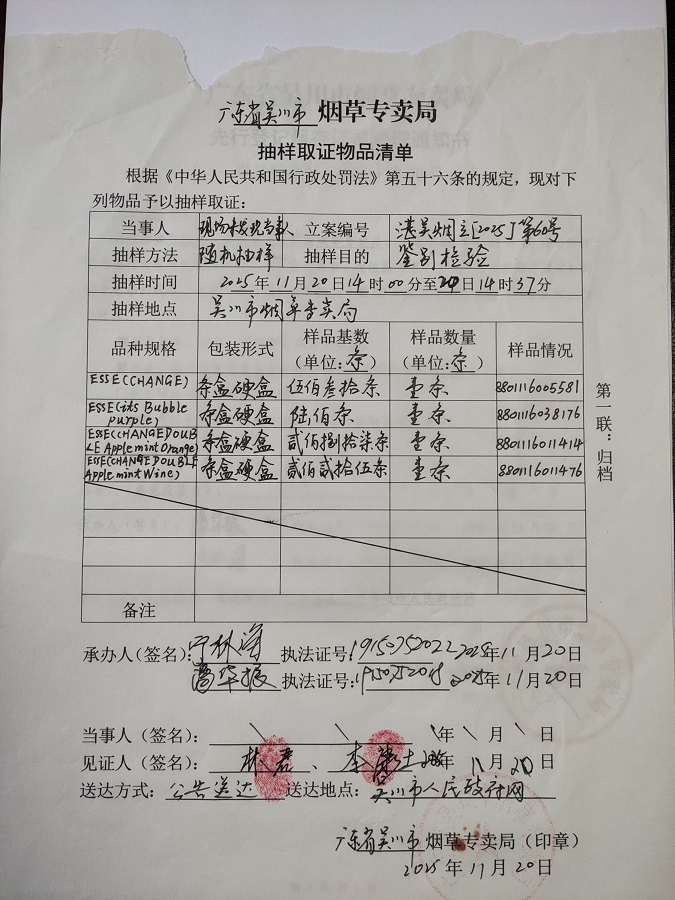 广东省吴川市 烟草专卖局
抽样取证物品清单
根据《中华人民共和国行政处罚法》第五十六条的规定，现对下
列物品予以抽样取证：
当事人 现场未发现当事人 立案编号 湛吴烟立[2025]第60号
抽样方法 随机抽样 抽样目的 鉴别检验
抽样时间 2025年11月20日14时00分至20日14时37分
抽样地点 吴川市烟草专卖局
品种规格 包装形式 样品基数（单位:条） 样品数量（单位:条） 样品情况
ESSE(CHANGE) 条盒硬盒 伍佰叁拾条 壹条 8801116005581
ESSE(its Bubble purple) 条盒硬盒 陆佰条 壹条 8801116038176
ESSE(CHANGEDOUBLE Applemint Orange) 条盒硬盒 贰佰捌拾柒条 壹条 8801116011414
ESSE(CHANGEDOUBLE Applemint Wine) 条盒硬盒 贰佰贰拾伍条 壹条 8801116011476
备注
第一联：归档
承办人（签名）： 执法证号:19150752022 2025年11月20日
执法证号: 2025年11月20日
当事人（签名）： \ \ \年\月\日
见证人（签名）： 林 、李 年11月20日
送达方式：公告送达 送达地点：吴川市人民政府网
广东省吴川市 烟草专卖局（印章）
2025年11月20日